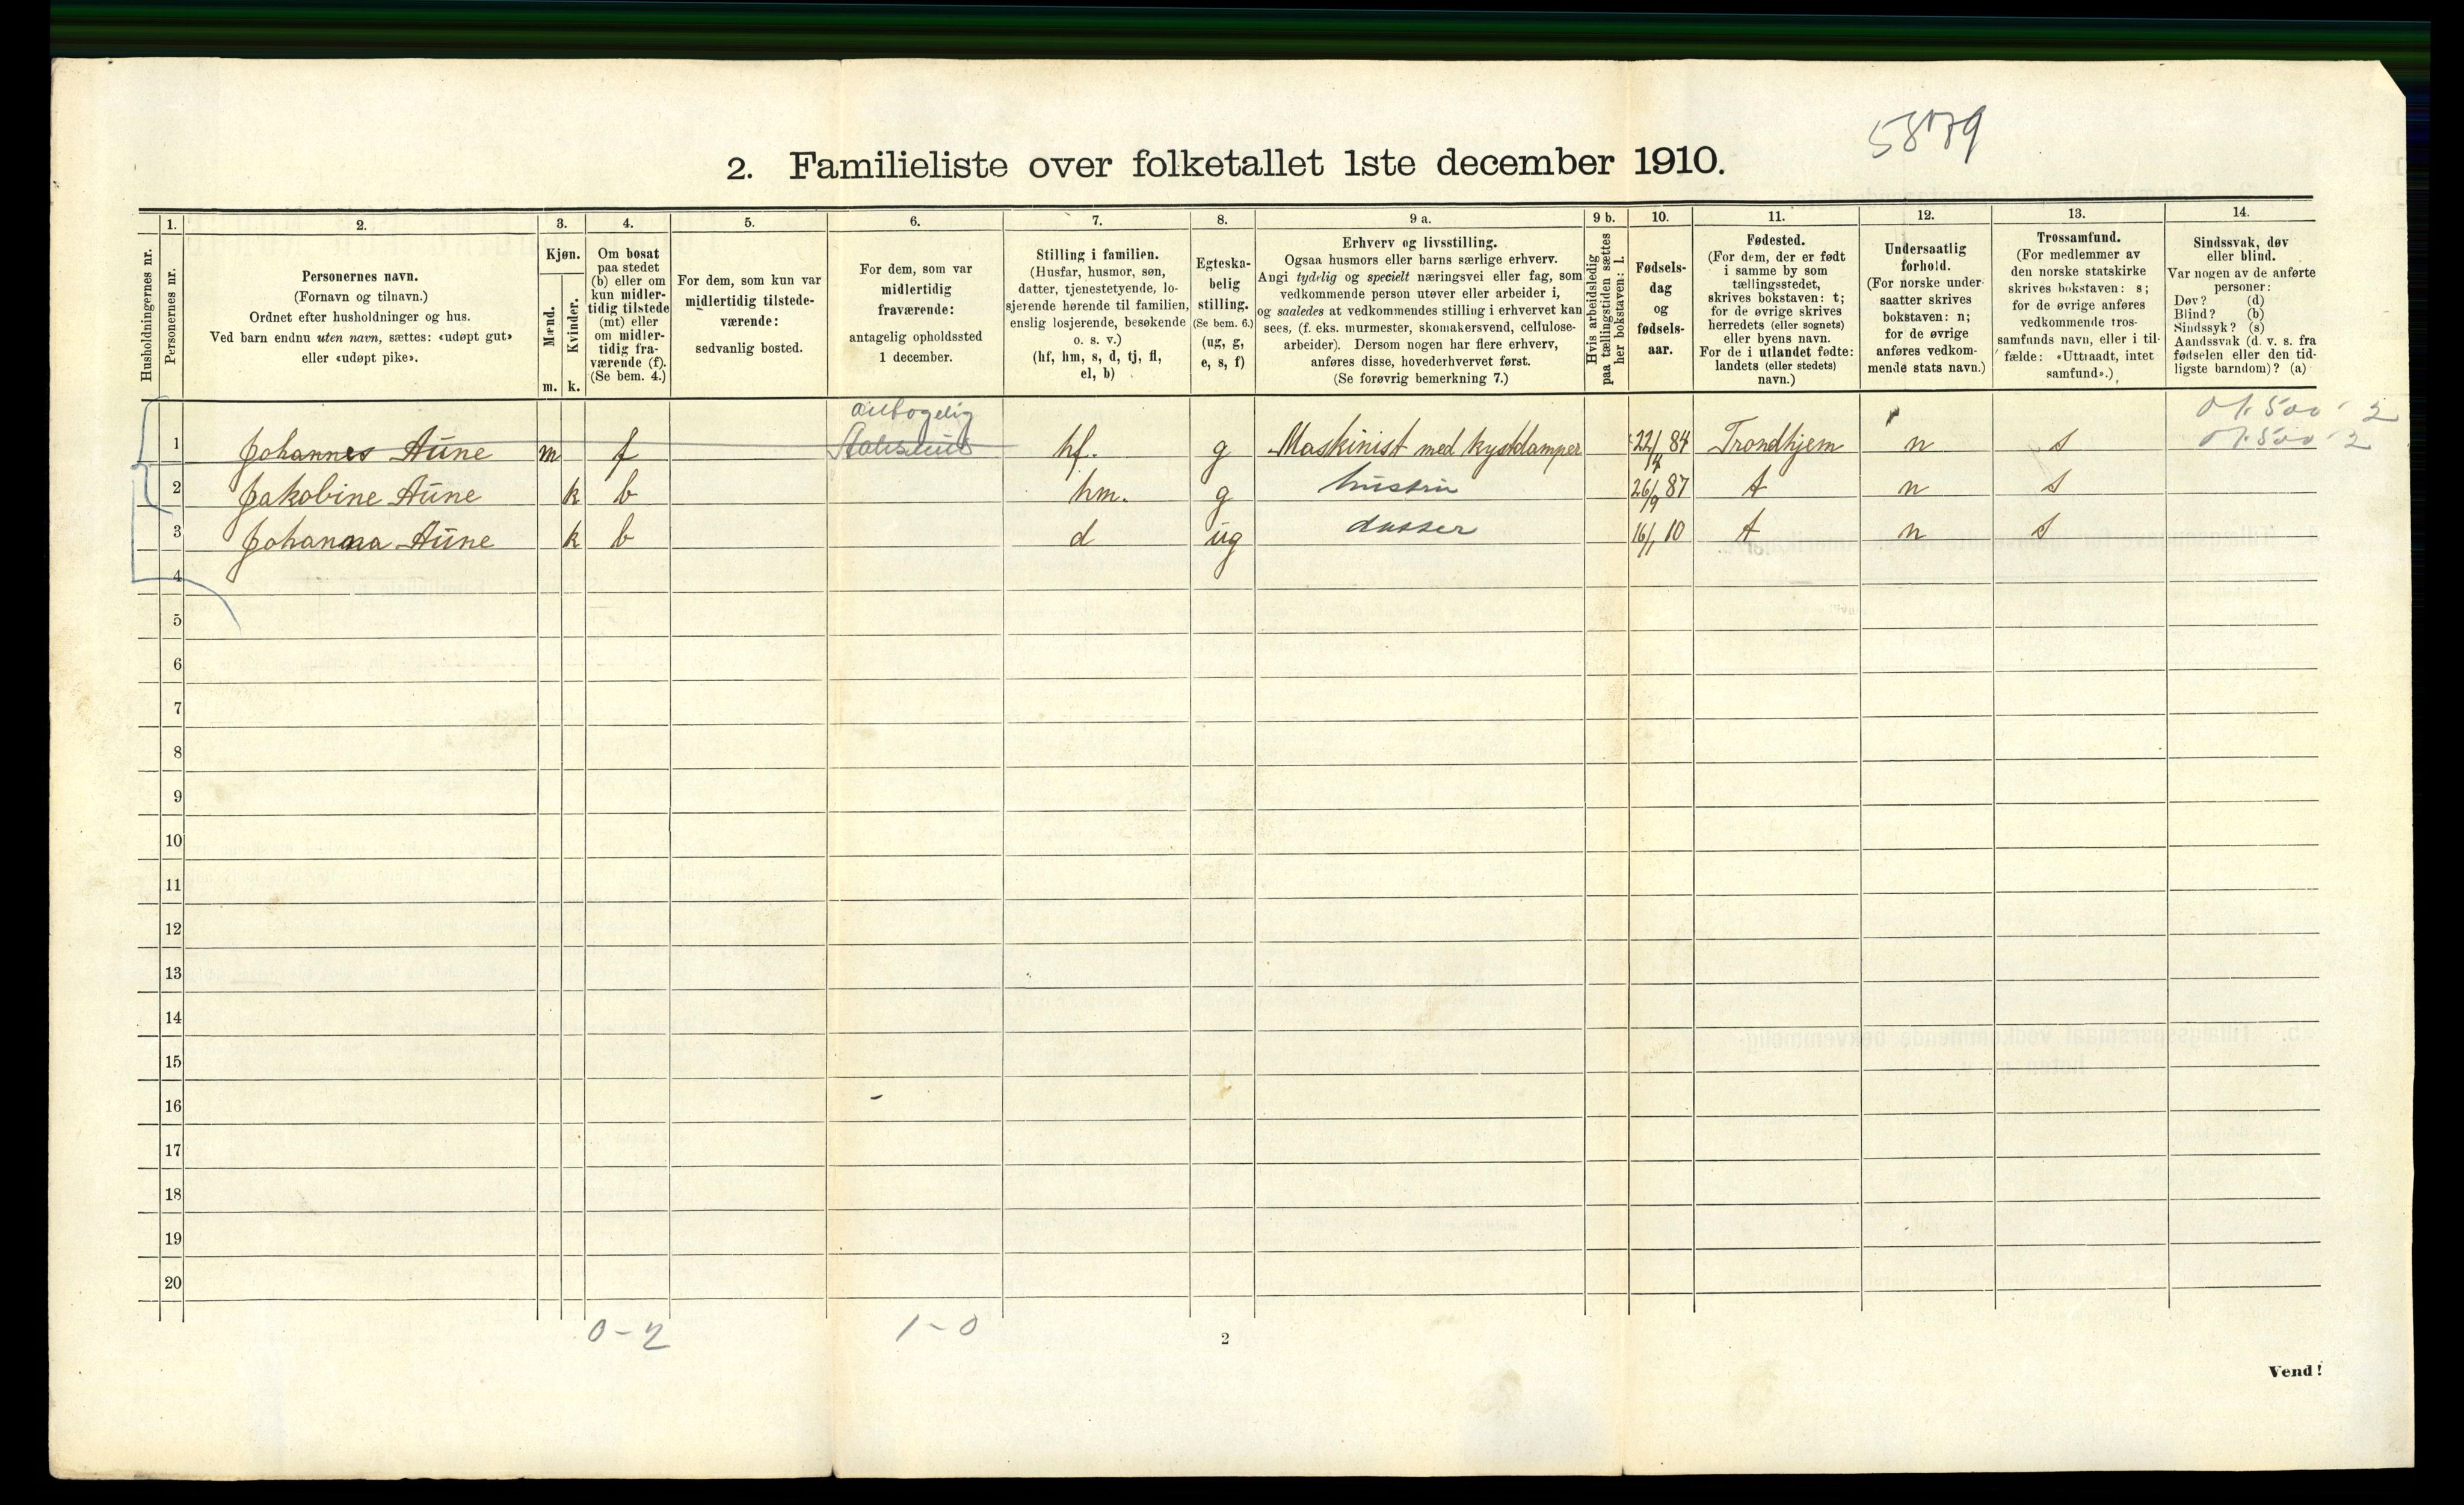 5879
2. Familieliste over folketallet 1ste december 1910.
Husholdningernes nr.
1. Personernes nr.
2. Personernes navn.
(Fornavn og tilnavn.)
Ordnet efter husholdninger og hus.
Ved barn endnu uten navn, sættes: «udøpt gut»
eller «udøpt pike».
3. Kjøn.
Mænd. m.
Kvinder. k.
4. Om bosat
paa stedet
(b) eller om
kun midler-
tidig tilstede
(mt) eller
om midler-
tidig fra-
værende (f).
(Se bem. 4.)
5. For dem, som kun var
midlertidig tilstede-
værende:
sedvanlig bosted.
6. For dem, som var
midlertidig
fraværende:
antagelig opholdssted
1 december.
7. Stilling i familien.
(Husfar, husmor, søn,
datter, tjenestetyende, lo-
sjerende hørende til familien,
enslig losjerende, besøkende
o. s. v.)
(hf, hm, s, d, tj, fl,
el, b)
8. Egteska-
belig
stilling.
(Se bem. 6.)
(ug, g,
e, s, f)
9 a. Erhverv og livsstilling.
Ogsaa husmors eller barns særlige erhverv.
Angi tydelig og specielt næringsvei eller fag, som
vedkommende person utøver eller arbeider i,
og saaledes at vedkommendes stilling i erhvervet kan
sees, (f. eks. murmester, skomakersvend, cellulose-
arbeider). Dersom nogen har flere erhverv,
anføres disse, hovederhvervet først.
(Se forøvrig bemerkning 7.)
9 b. Hvis arbeidsledig
paa tællingstiden sættes
her bokstaven: l.
10. Fødsels-
dag
og
fødsels-
aar.
11. Fødested.
(For dem, der er født
i samme by som
tællingsstedet,
skrives bokstaven: t;
for de øvrige skrives
herredets (eller sognets)
eller byens navn.
For de i utlandet fødte:
landets (eller stedets)
navn.)
12. Undersaatlig
forhold.
(For norske under-
saatter skrives
bokstaven: n;
for de øvrige
anføres vedkom-
mende stats navn.)
13. Trossamfund.
(For medlemmer av
den norske statskirke
skrives bokstaven: s;
for de øvrige anføres
vedkommende tros-
samfunds navn, eller i til-
fælde: «Uttraadt, intet
samfund».)
14. Sindssvak, døv
eller blind.
Var nogen av de anførte
personer:
Døv? (d)
Blind? (b)
Sindssyk? (s)
Aandssvak (d. v. s. fra
fødselen eller den tid-
ligste barndom)? (a)
antagelig
1 Johannes Aune m f hf. g Maskinist med kystdamper 22/4 84 Trondhjem n s
2 Jakobine Aune k b hm. g hustru 26/9 87 t n s
3 Johanna Aune k b d ug datter 16/1 10 t n s
4
5
6
7
8
9
10
11
12
13
14
15
16
17
18
19
20
0-2 1-0
2
Vend!